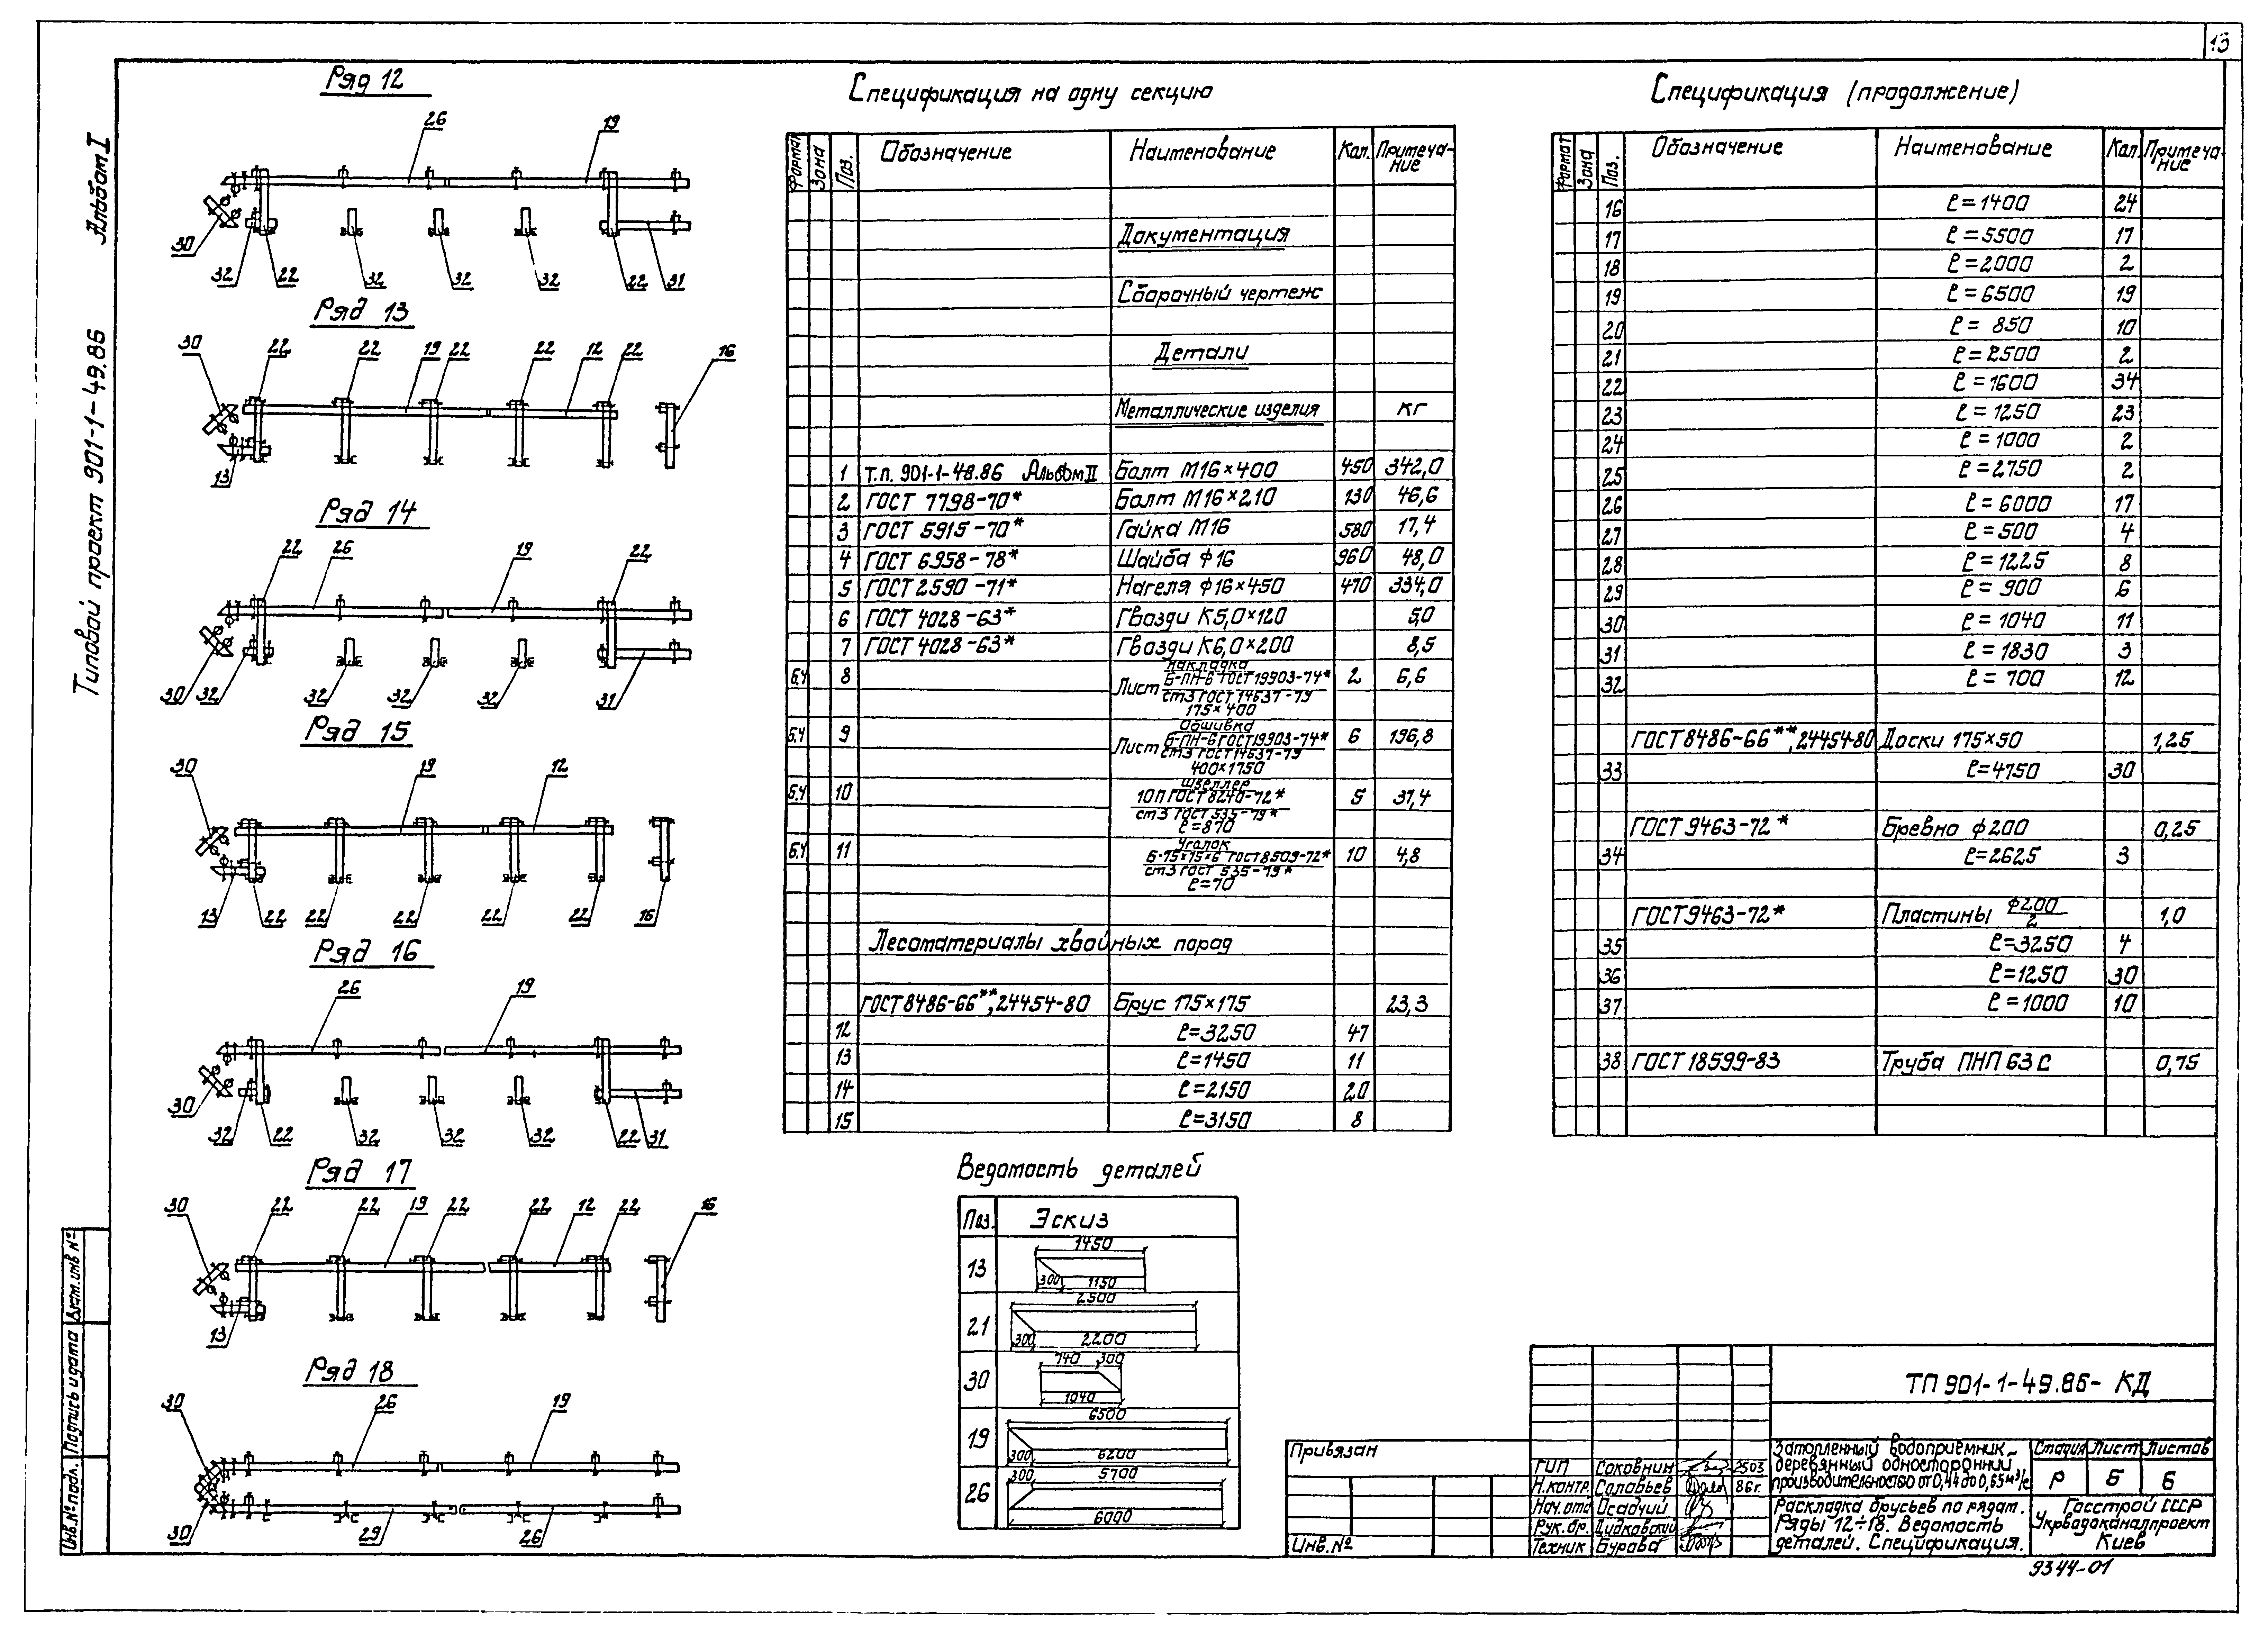 13
Альбом I
Типовой проект 901-1-49.86
Ряд 12
26 19
30 32 22 32 32 32 22 31
Ряд 13
30 22 22 19 22 22 12 22 16
13
Ряд 14
22 26 19 22
30 32 32 32 32 31
Ряд 15
30 19 12
13 22 22 22 22 22 16
Ряд 16
26 19
30 32 22 32 32 32 22 31
Ряд 17
30 22 22 19 22 22 12 22 16
13
Ряд 18
30 26 19
30 29 26
Спецификация на одну секцию
Формат Зона Поз. Обозначение Наименование Кол. Примеча-
ние
Документация
Сборочный чертеж
Детали
Металлические изделия кг
1 Т.п. 901-1-48.86 Альбом II Болт М16×400 450 342,0
2 ГОСТ 7798-70* Болт М16×210 130 46,6
3 ГОСТ 5915-70* Гайка М16 580 17,4
4 ГОСТ 6958-78* Шайба ф16 960 48,0
5 ГОСТ 2590-71* Нагеля ф16×450 470 334,0
6 ГОСТ 4028-63* Гвозди К5,0×120 5,0
7 ГОСТ 4028-63* Гвозди К6,0×200 8,5
Накладка
Б.Ч 8 Лист Б-ПН-6 ГОСТ 19903-74* 2 6,6
ст3 ГОСТ 14637-79
175×400
Обшивка
Б.Ч 9 Лист Б-ПН-6 ГОСТ 19903-74* 6 196,8
ст3 ГОСТ 14637-79
400×1750
Швеллер
Б.Ч 10 10П ГОСТ 8240-72* 5 37,4
ст3 ГОСТ 535-79*
ℓ=870
Уголок
Б.Ч 11 Б-75×75×6 ГОСТ 8509-72* 10 4,8
ст3 ГОСТ 535-79*
ℓ=70
Лесоматериалы хвойных пород
ГОСТ 8486-66**, 24454-80 Брус 175×175 23,3
12 ℓ=3250 47
13 ℓ=1450 11
14 ℓ=2150 20
15 ℓ=3150 8
Спецификация (продолжение)
Формат Зона Поз. Обозначение Наименование Кол. Примеча-
ние
16 ℓ=1400 24
17 ℓ=5500 17
18 ℓ=2000 2
19 ℓ=6500 19
20 ℓ= 850 10
21 ℓ=2500 2
22 ℓ=1600 34
23 ℓ=1250 23
24 ℓ=1000 2
25 ℓ=2750 2
26 ℓ=6000 17
27 ℓ=500 4
28 ℓ=1225 8
29 ℓ= 900 6
30 ℓ=1040 11
31 ℓ=1830 3
32 ℓ= 700 12
ГОСТ 8486-66**, 24454-80 Доски 175×50 1,25
33 ℓ=4750 30
ГОСТ 9463-72* Бревно ф200 0,25
34 ℓ=2625 3
ГОСТ 9463-72* Пластины ф200/2 1,0
35 ℓ=3250 4
36 ℓ=1250 30
37 ℓ=1000 10
38 ГОСТ 18599-83 Труба ПНП 63 С 0,75
Ведомость деталей
Поз. Эскиз
1450
13
300 1150
2500
21
300 2200
740 300
30
1040
6500
19
300 6200
300 5700
26
6000
Привязан
Инв.№
ГИП Соковнин 2503
Н.контр. Соловьев 86г.
Нач.отд Осадчий
Рук.бр. Дидковский
Техник Бурова
ТП 901-1-49.86- КД
Затопленный водоприемник
деревянный односторонний
производительностью от 0,44 до 0,65 м³/с
Стадия Лист Листов
Р 6 6
Раскладка брусьев по рядам.
Ряды 12÷18. Ведомость
деталей. Спецификация.
Госстрой СССР
Укрводоканалпроект
Киев
9344-01
Взам.инв №
Подпись и дата
Инв.№ подл.